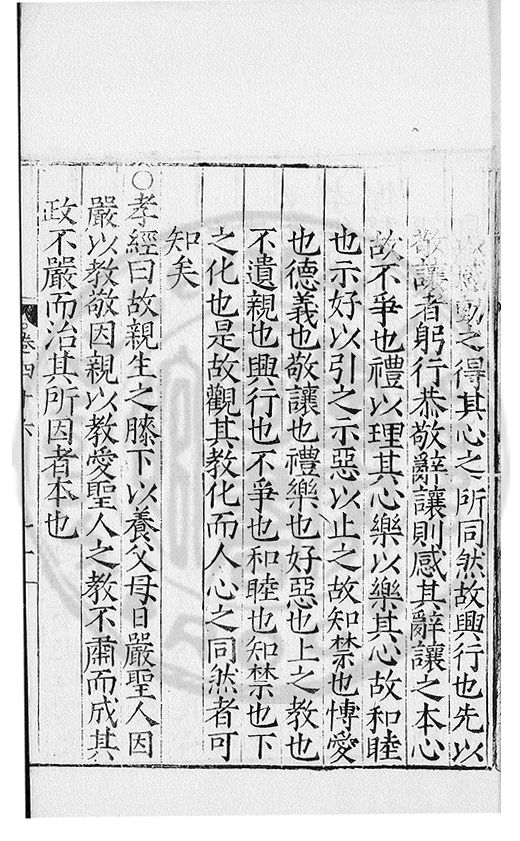 感動之得其心之所同然故興行也先以
敬讓者躬行恭敬辭讓則感其辭讓之本心
故不爭也禮以理其心樂以樂其心故和睦
也示好以引之示惡以止之故知禁也博愛
也德義也敬讓也禮樂也好惡也上之教也
不遺親也興行也不爭也和睦也知禁也下
之化也是故觀其教化而人心之同然者可
知矣
○孝經曰故親生之膝下以養父母日嚴聖人因
嚴以教敬因親以教愛聖人之教不肅而成其
政不嚴而治其所因者本也
卷四十六